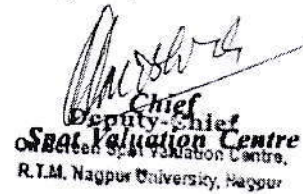 Chief
Deputy-Chief
Spot Valuation Centre
On Screen Spot Valuation Centre,
R.T.M. Nagpur University, Nagpur